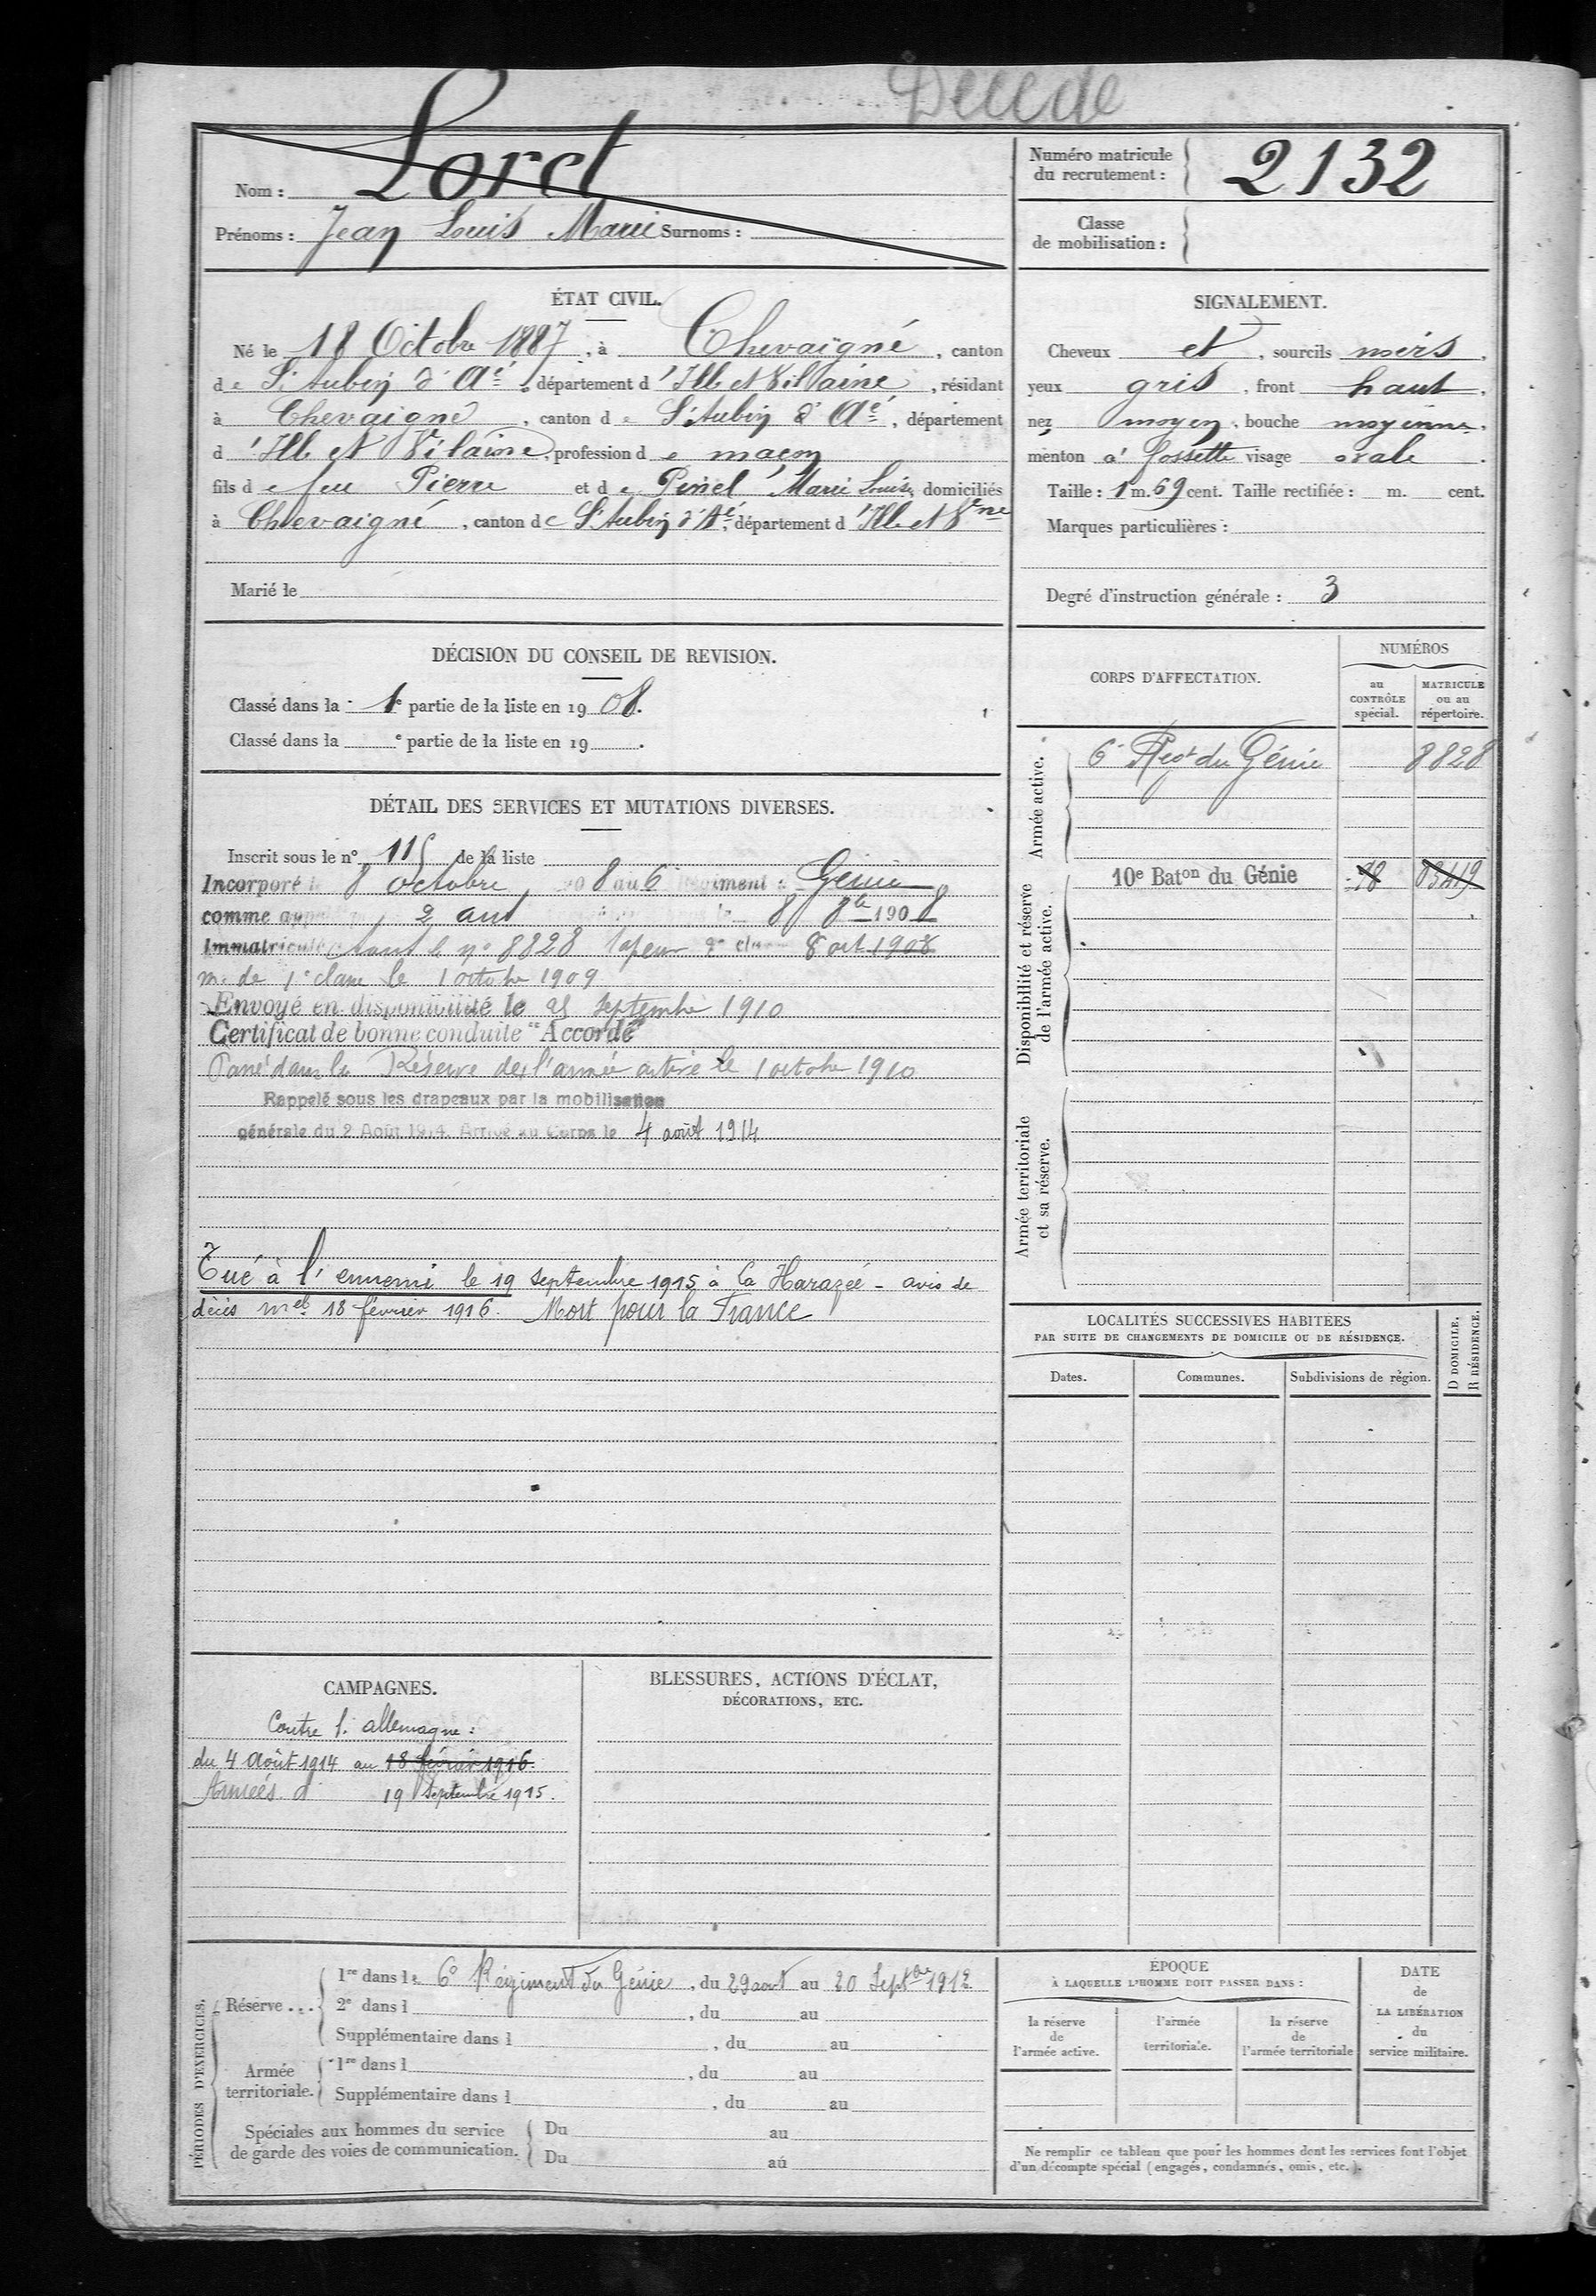 Décédé
Nom : Loret
Prénoms : Jean Louis Marie Surnoms :
Numéro matricule
du recrutement : 2132
Classe
de mobilisation :
ÉTAT CIVIL.
Né le 18 Octobre 1887, à Chevaigné, canton
de St Aubin d'Aé, département d'Ille et Vilaine, résidant
à Chevaigné, canton de St Aubin d'Aé, département
d'Ille et Vilaine, profession de maçon
fils de feu Pierre et de Pinel Marie Louise, domiciliés
à Chevaigné, canton de St Aubin d'Aé, département d'Ille et Vne
Marié le
SIGNALEMENT.
Cheveux et, sourcils noirs,
yeux gris, front haut,
nez moyen, bouche moyenne,
menton à fossette visage ovale.
Taille : 1 m. 69 cent. Taille rectifiée : m. cent.
Marques particulières :
Degré d'instruction générale : 3
DÉCISION DU CONSEIL DE REVISION.
Classé dans la 1e partie de la liste en 1908.
Classé dans la e partie de la liste en 19 .
DÉTAIL DES SERVICES ET MUTATIONS DIVERSES.
Inscrit sous le n° 115 de la liste
Incorporé le 8 octobre 8 au 6 Régiment : Génie
comme 2 ans 8 8bre 1908
Immatriculé sous le n° 8828 Sapeur 2e classe 8 oct 1908
m. de 1e classe le 1 octobre 1909
Envoyé en disponibilité le 25 septembre 1910
Certificat de bonne conduite "Accordé"
Passé dans la Réserve de l'armée active le 1 octobre 1910
Rappelé sous les drapeaux par la mobilisation
générale du 2 Août 1914. Arrivé au Corps le 4 août 1914
Tué à l'ennemi le 19 septembre 1915 à La Harazée - avis de
décès mel 18 février 1916. Mort pour la France
CORPS D'AFFECTATION.
NUMÉROS
au
CONTRÔLE
spécial.
MATRICULE
ou au
répertoire.
Armée active.
6e Regt du Génie 8828
Disponibilité et réserve
de l'armée active.
10e Baton du Génie 18 03419
Armée territoriale
et sa réserve.
LOCALITÉS SUCCESSIVES HABITÉES
PAR SUITE DE CHANGEMENTS DE DOMICILE OU DE RÉSIDENCE.
Dates. Communes. Subdivisions de région.
D DOMICILE.
R RÉSIDENCE.
CAMPAGNES.
Contre l'allemagne :
du 4 Août 1914 au 18 février 1916.
Armées d 19 Septembre 1915.
BLESSURES, ACTIONS D'ÉCLAT,
DÉCORATIONS, ETC.
PÉRIODES D'EXERCICES.
Réserve ...
1re dans le 6e Régiment du Génie, du 29 aout au 20 Septbre 1912
2e dans l , du au
Supplémentaire dans l , du au
Armée
territoriale.
1re dans l , du au
Supplémentaire dans l , du au
Spéciales aux hommes du service
de garde des voies de communication.
Du au
Du au
ÉPOQUE
À LAQUELLE L'HOMME DOIT PASSER DANS :
la réserve
de
l'armée active.
l'armée
territoriale.
la réserve
de
l'armée territoriale
DATE
de
LA LIBÉRATION
du
service militaire.
Ne remplir ce tableau que pour les hommes dont les services font l'objet
d'un décompte spécial (engagés, condamnés, omis, etc.).